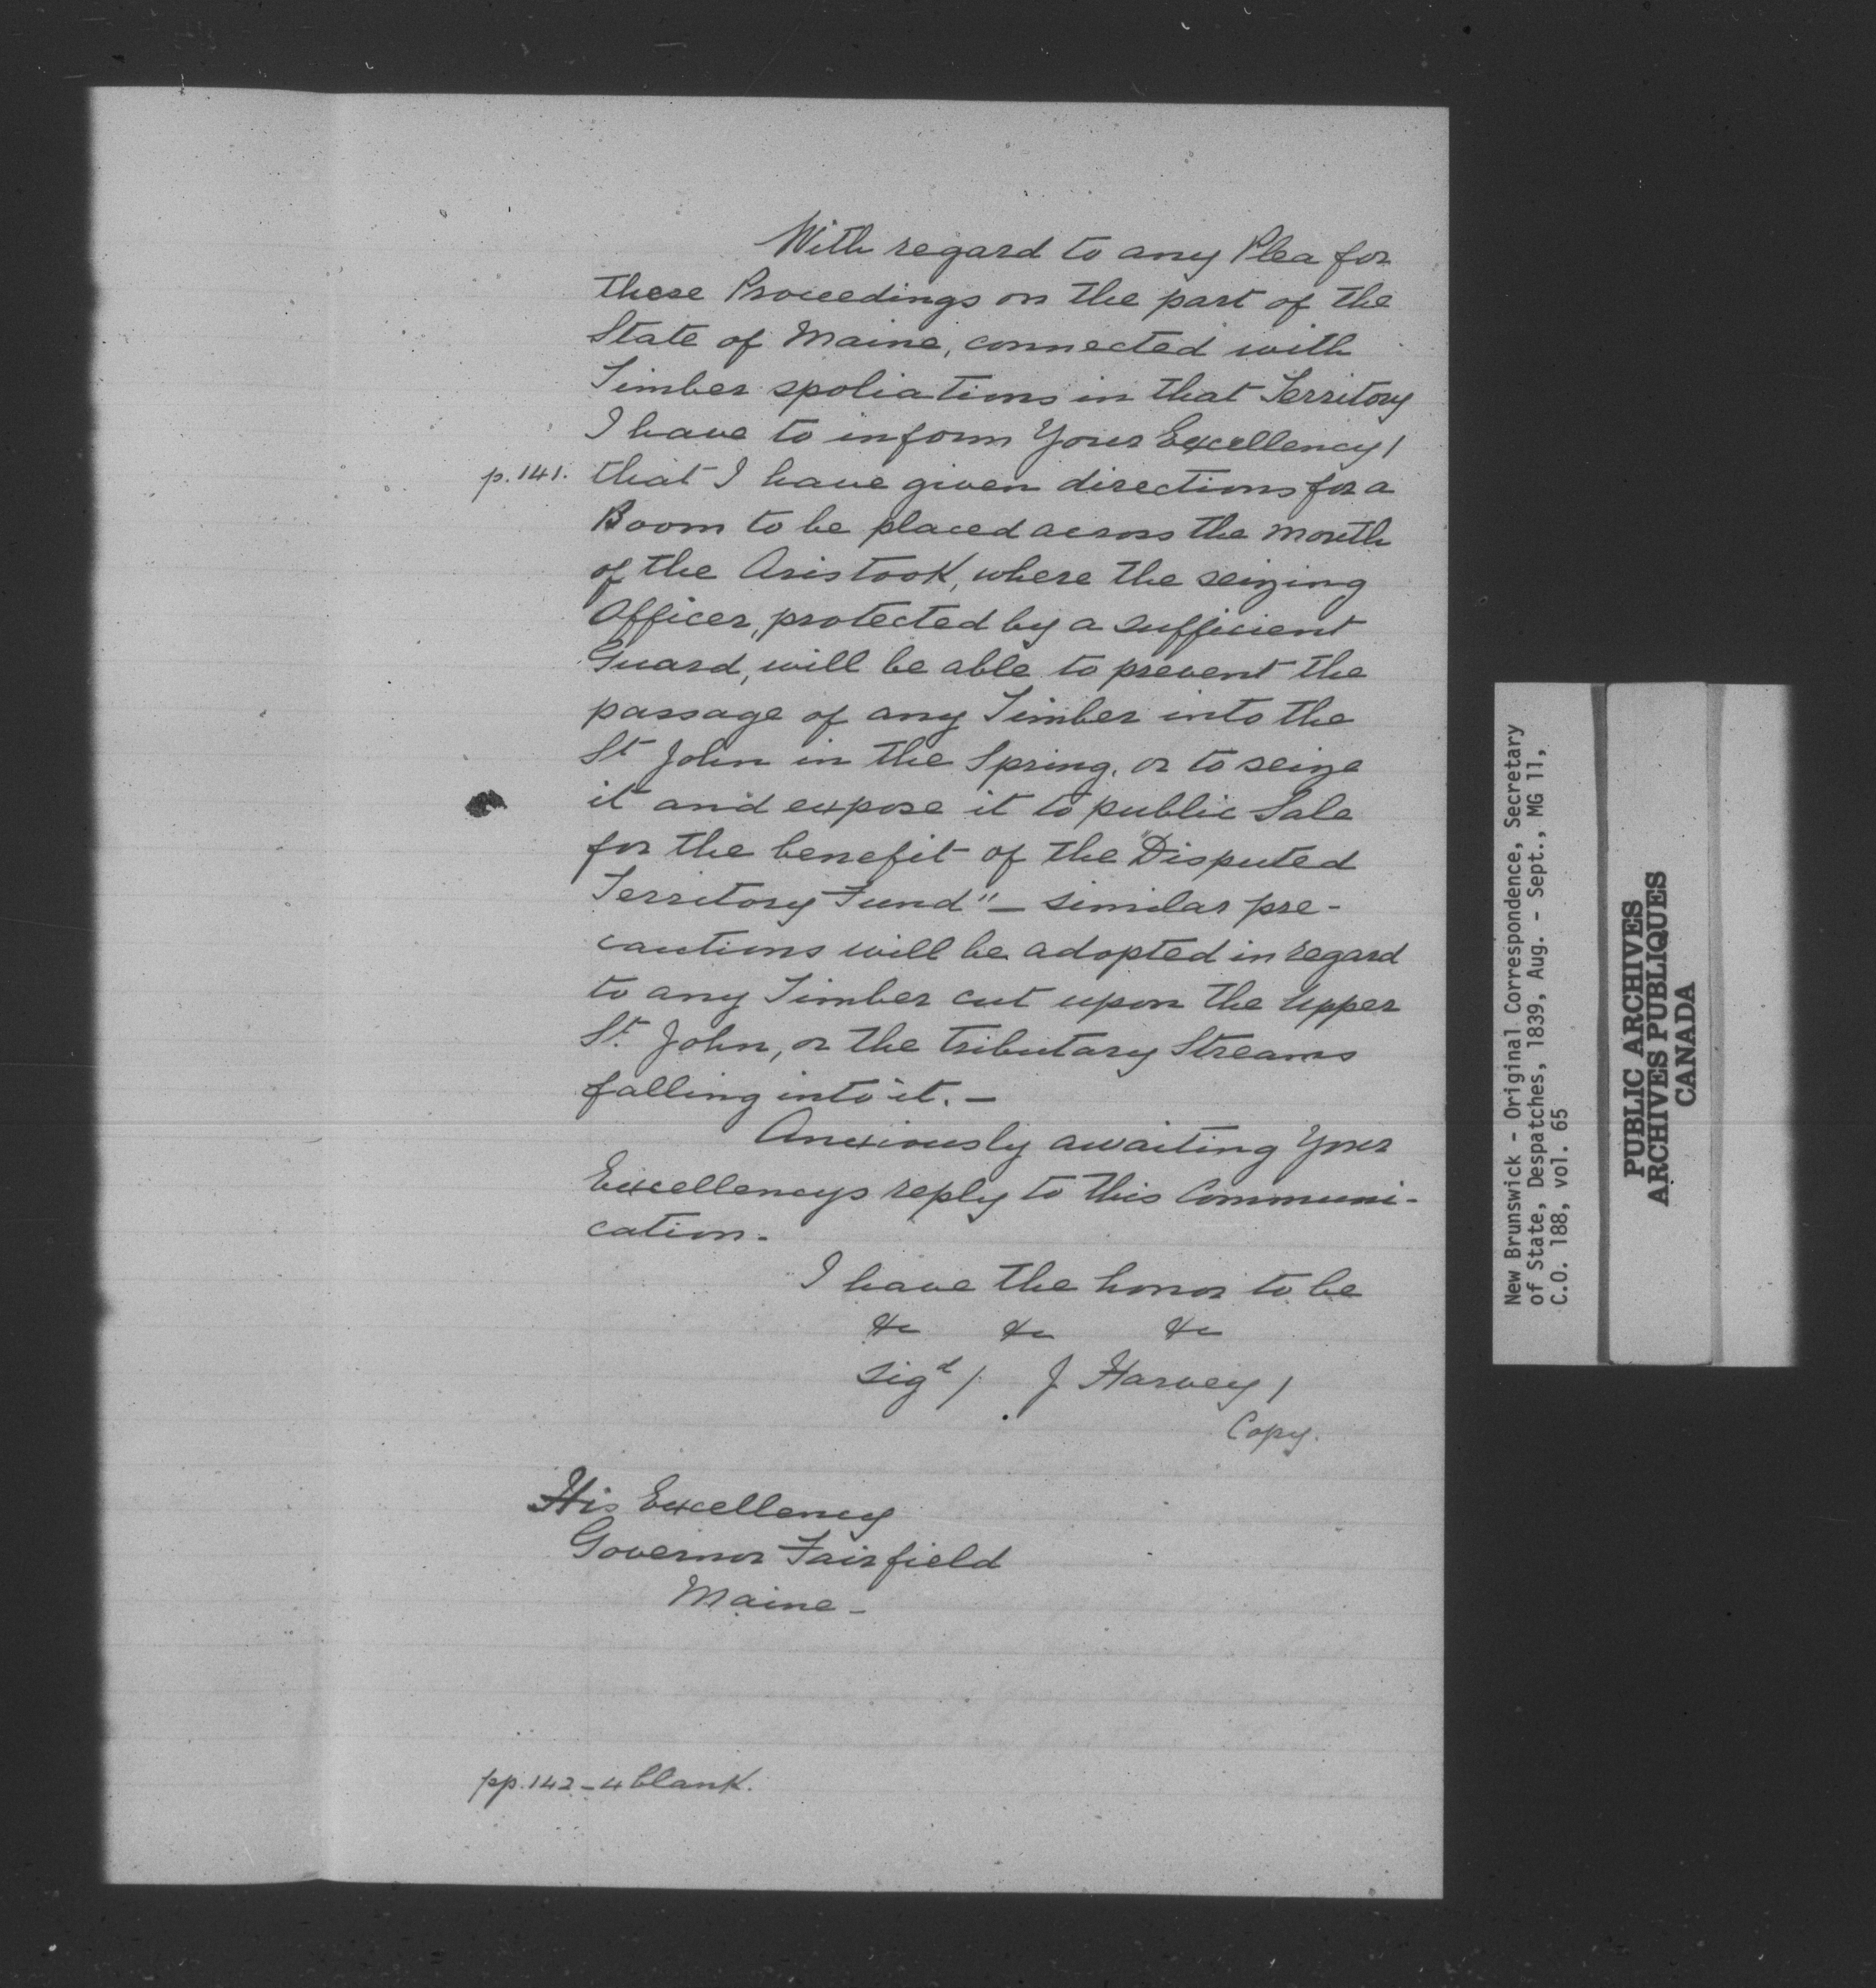 With regard to any Plea for
these Proceedings on the part of the
State of Maine, connected with
Timber spoliations in that Territory
I have to inform Your Excellency /
p. 141. that I have given directions for a
Boom to be placed across the mouth
of the Aristook, where the seizing
Officer, protected by a sufficient
Guard, will be able to prevent the
passage of any Timber into the
St John in the Spring, or to seize
it and expose it to public Sale
for the benefit of the "Disputed
Territory Fund" — similar pre-
cautions will be adopted in regard
to any Timber cut upon the Upper
St. John, or the tributary Streams
falling into it. —
Anxiously awaiting Your
Excellencys reply to this Communi-
cation.
I have the honor to be
&c &c &c
Sigd / J Harvey /
Copy.
His Excellency
Governor Fairfield
Maine -
pp. 142-4 blank.
New Brunswick - Original Correspondence, Secretary
of State, Despatches, 1839, Aug. - Sept., MG 11,
C.O. 188, vol. 65
PUBLIC ARCHIVES
ARCHIVES PUBLIQUES
CANADA